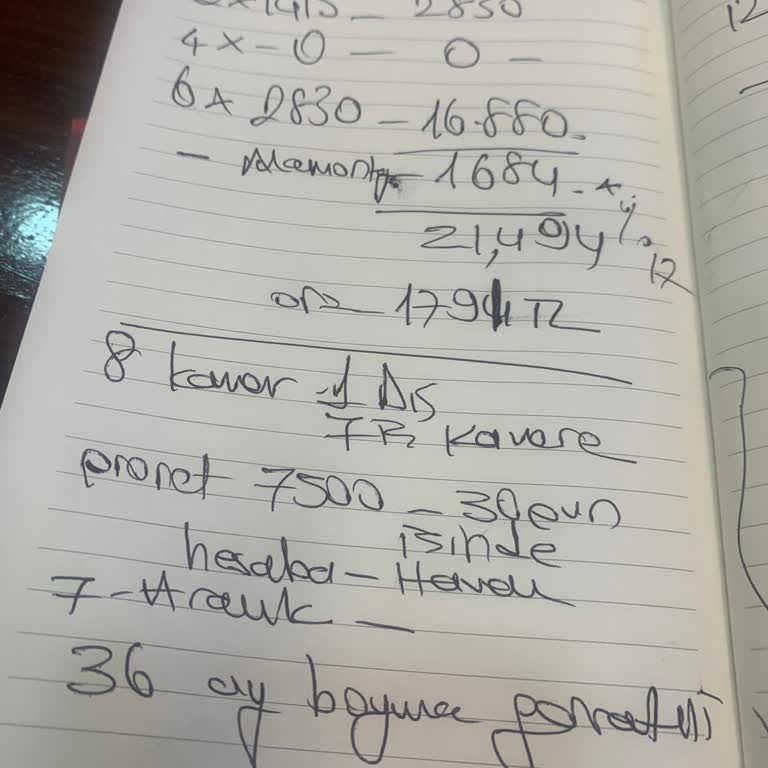 2830
4 x - 0 - 0 -
6 x 2830 - 16.880.
- 1684.
21,494 % 12
1794 TL
8 kavar 1
kavare
pronet 7500 - 30 gun
isinde
hesaba - Havale
7 - Aralık -
36 ay boyunca garantili